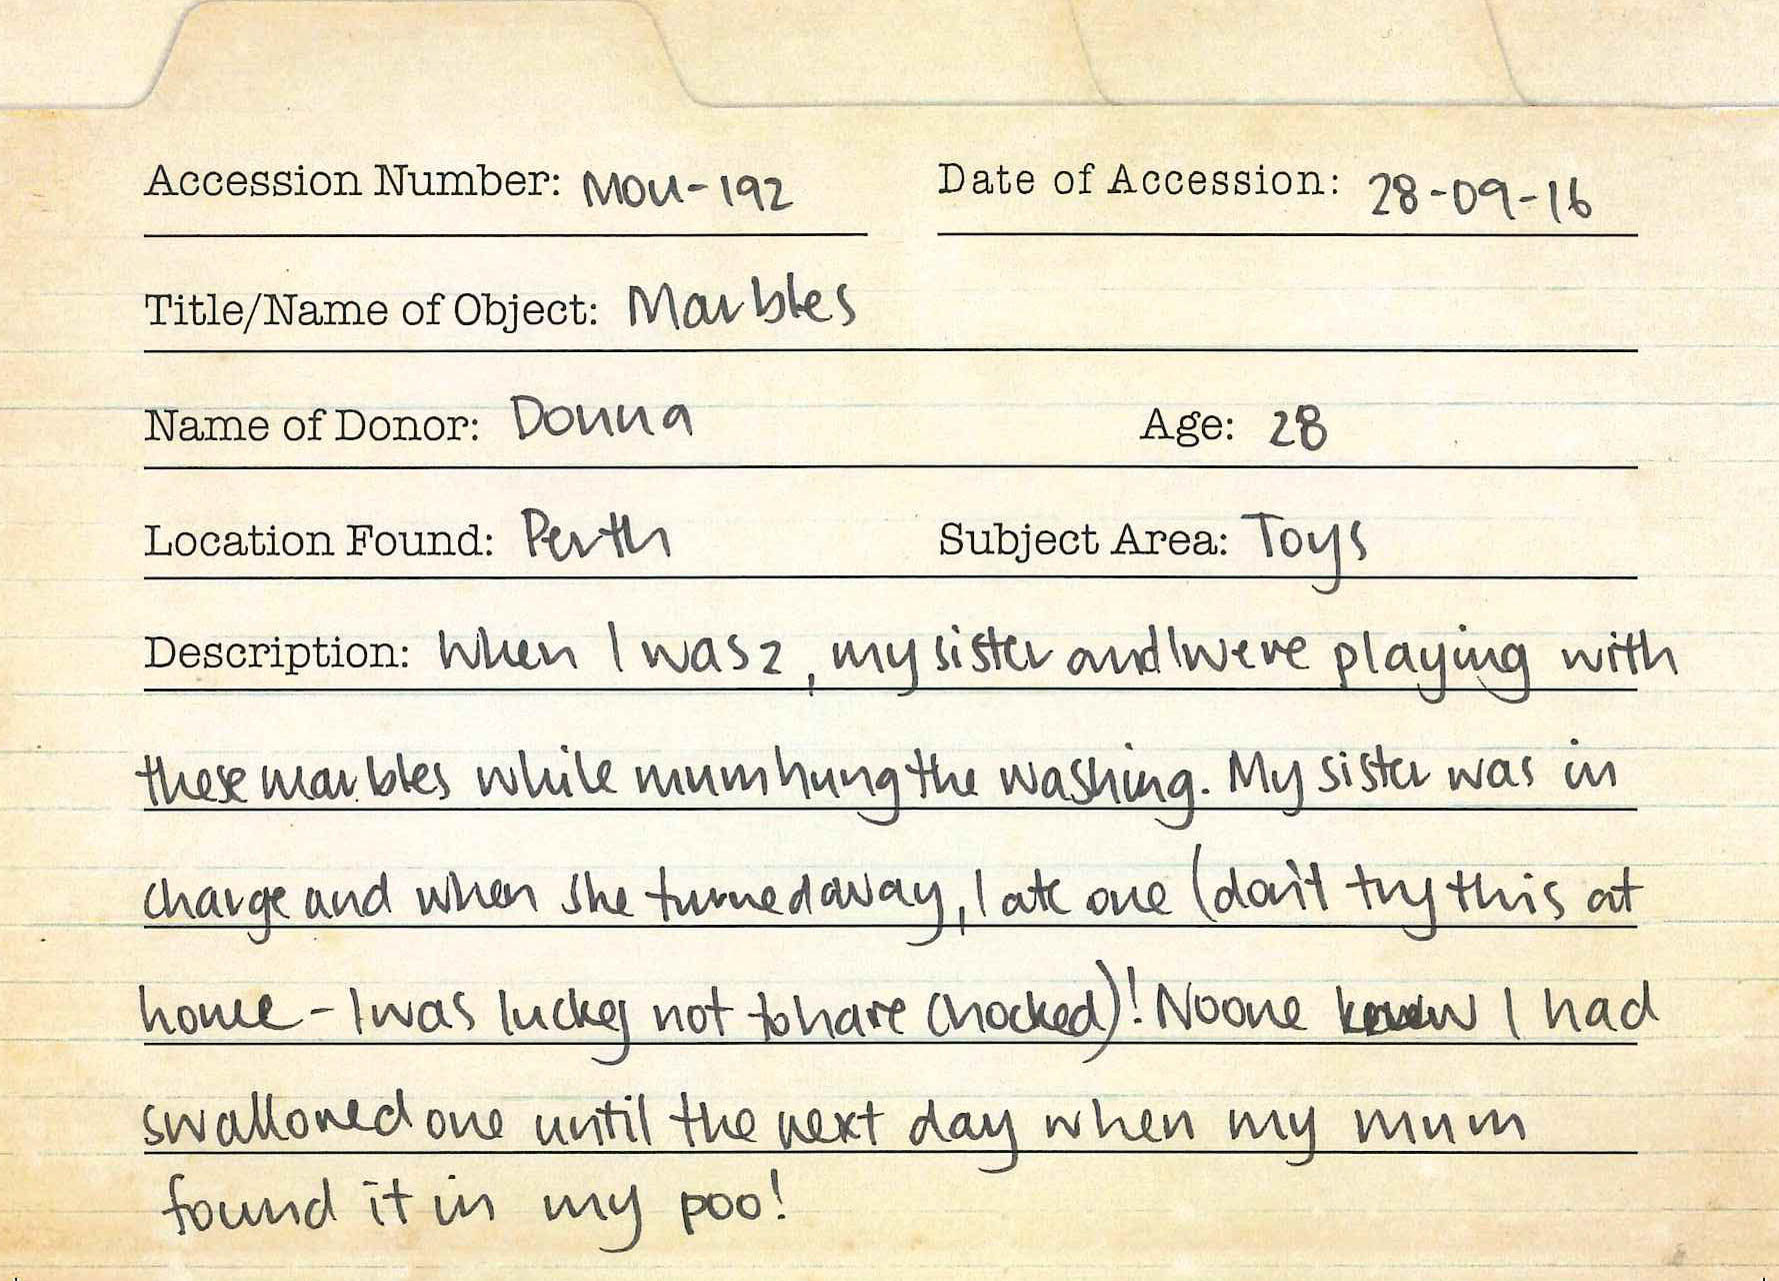 Accession Number: MOU-192 Date of Accession: 28-09-16
Title/Name of Object: Marbles
Name of Donor: Donna Age: 28
Location Found: Perth Subject Area: Toys
Description: When I was 2, my sister and I were playing with
these marbles while mum hung the washing. My sister was in
charge and when she turned away, I ate one (don't try this at
home - I was lucky not to have chocked)! Noone knew I had
swallowed one until the next day when my mum
found it in my poo!